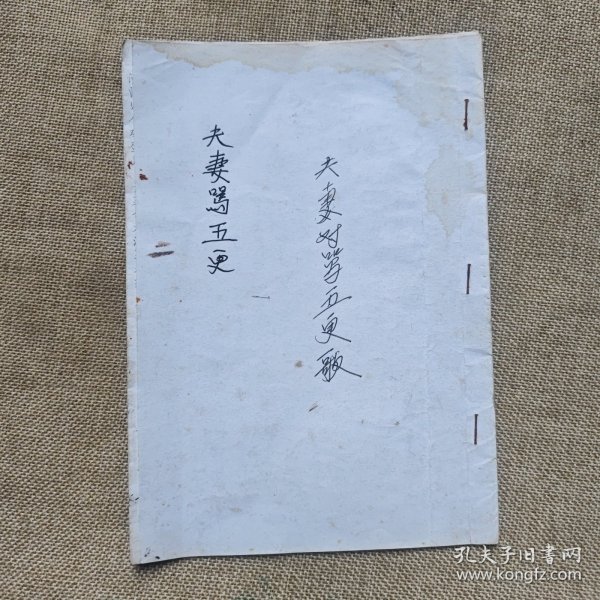 夫妻对骂五更歌
夫妻骂五更
孔夫子旧书网
www.kongfz.com